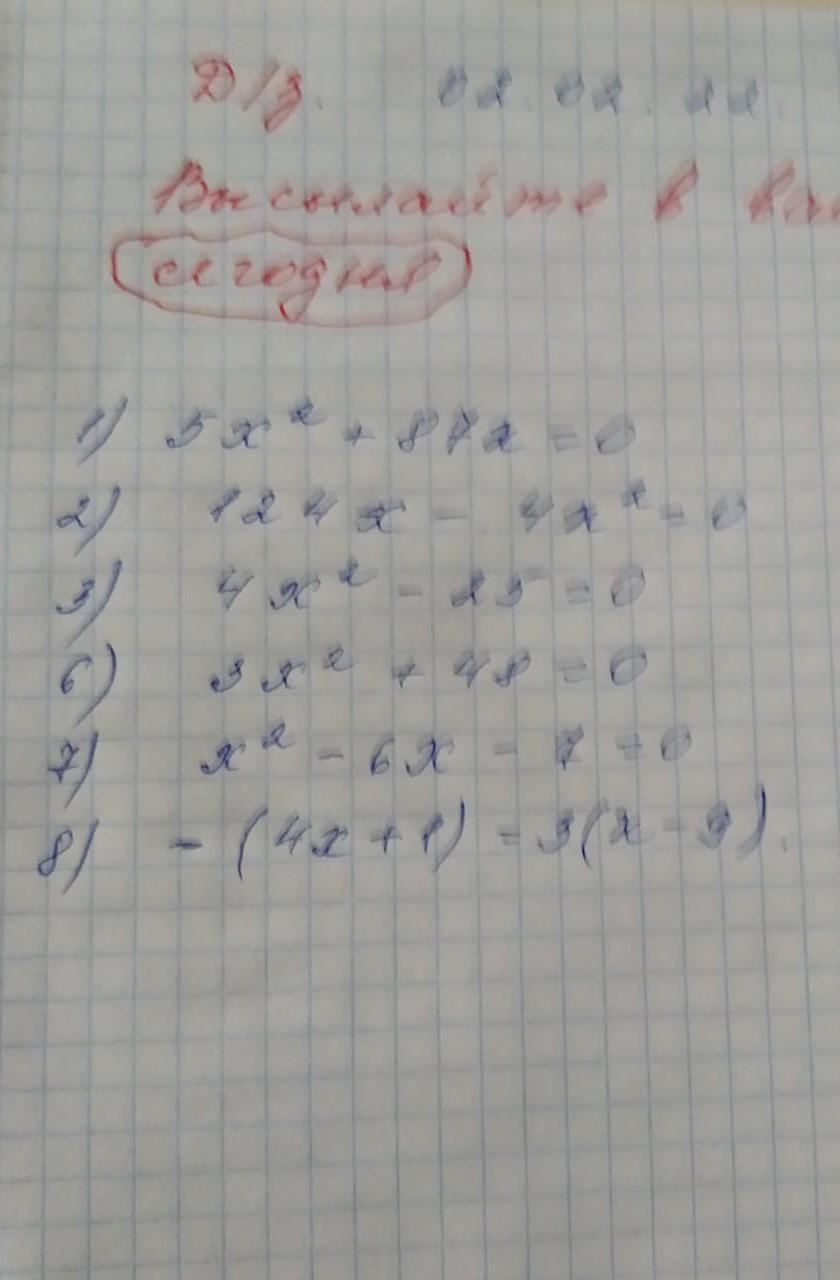 Д/з. 02.02.22.
Высылайте в
сегодня
1) 5x² + 87x = 0
2) 124x - 4x² = 0
3) 4x² - 25 = 0
6) 3x² + 48 = 0
7) x² - 6x - 7 = 0
8) - (4x + 1) = 3(x - 9).